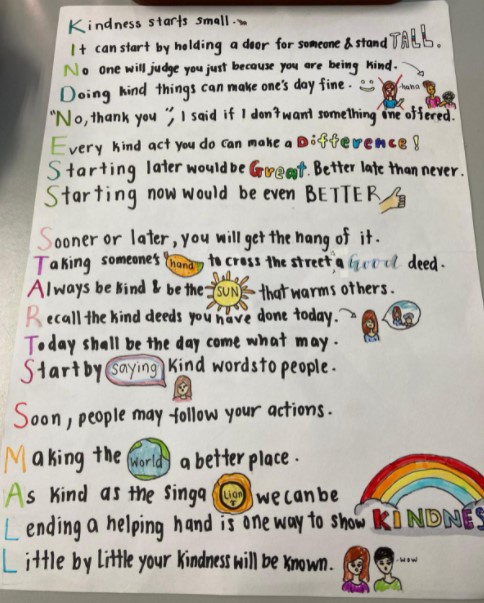 Kindness starts small.
It can start by holding a door for someone & stand TALL.
No one will judge you just because you are being kind.
Doing kind things can make one's day fine.
-haha
"No, thank you", I said if I don't want something one offered.
Every kind act you do can make a Difference!
Starting later would be Great. Better late than never.
Starting now would be even BETTER
Sooner or later, you will get the hang of it.
Taking someone's hand to cross the street, a Good deed.
Always be kind & be the SUN that warms others.
Recall the kind deeds you have done today.
Today shall be the day come what may.
Start by saying kind words to people.
Soon, people may follow your actions.
Making the World a better place.
As kind as the Singa Lion we can be
Lending a helping hand is one way to show KINDNES
Little by Little your kindness will be known.
-wow